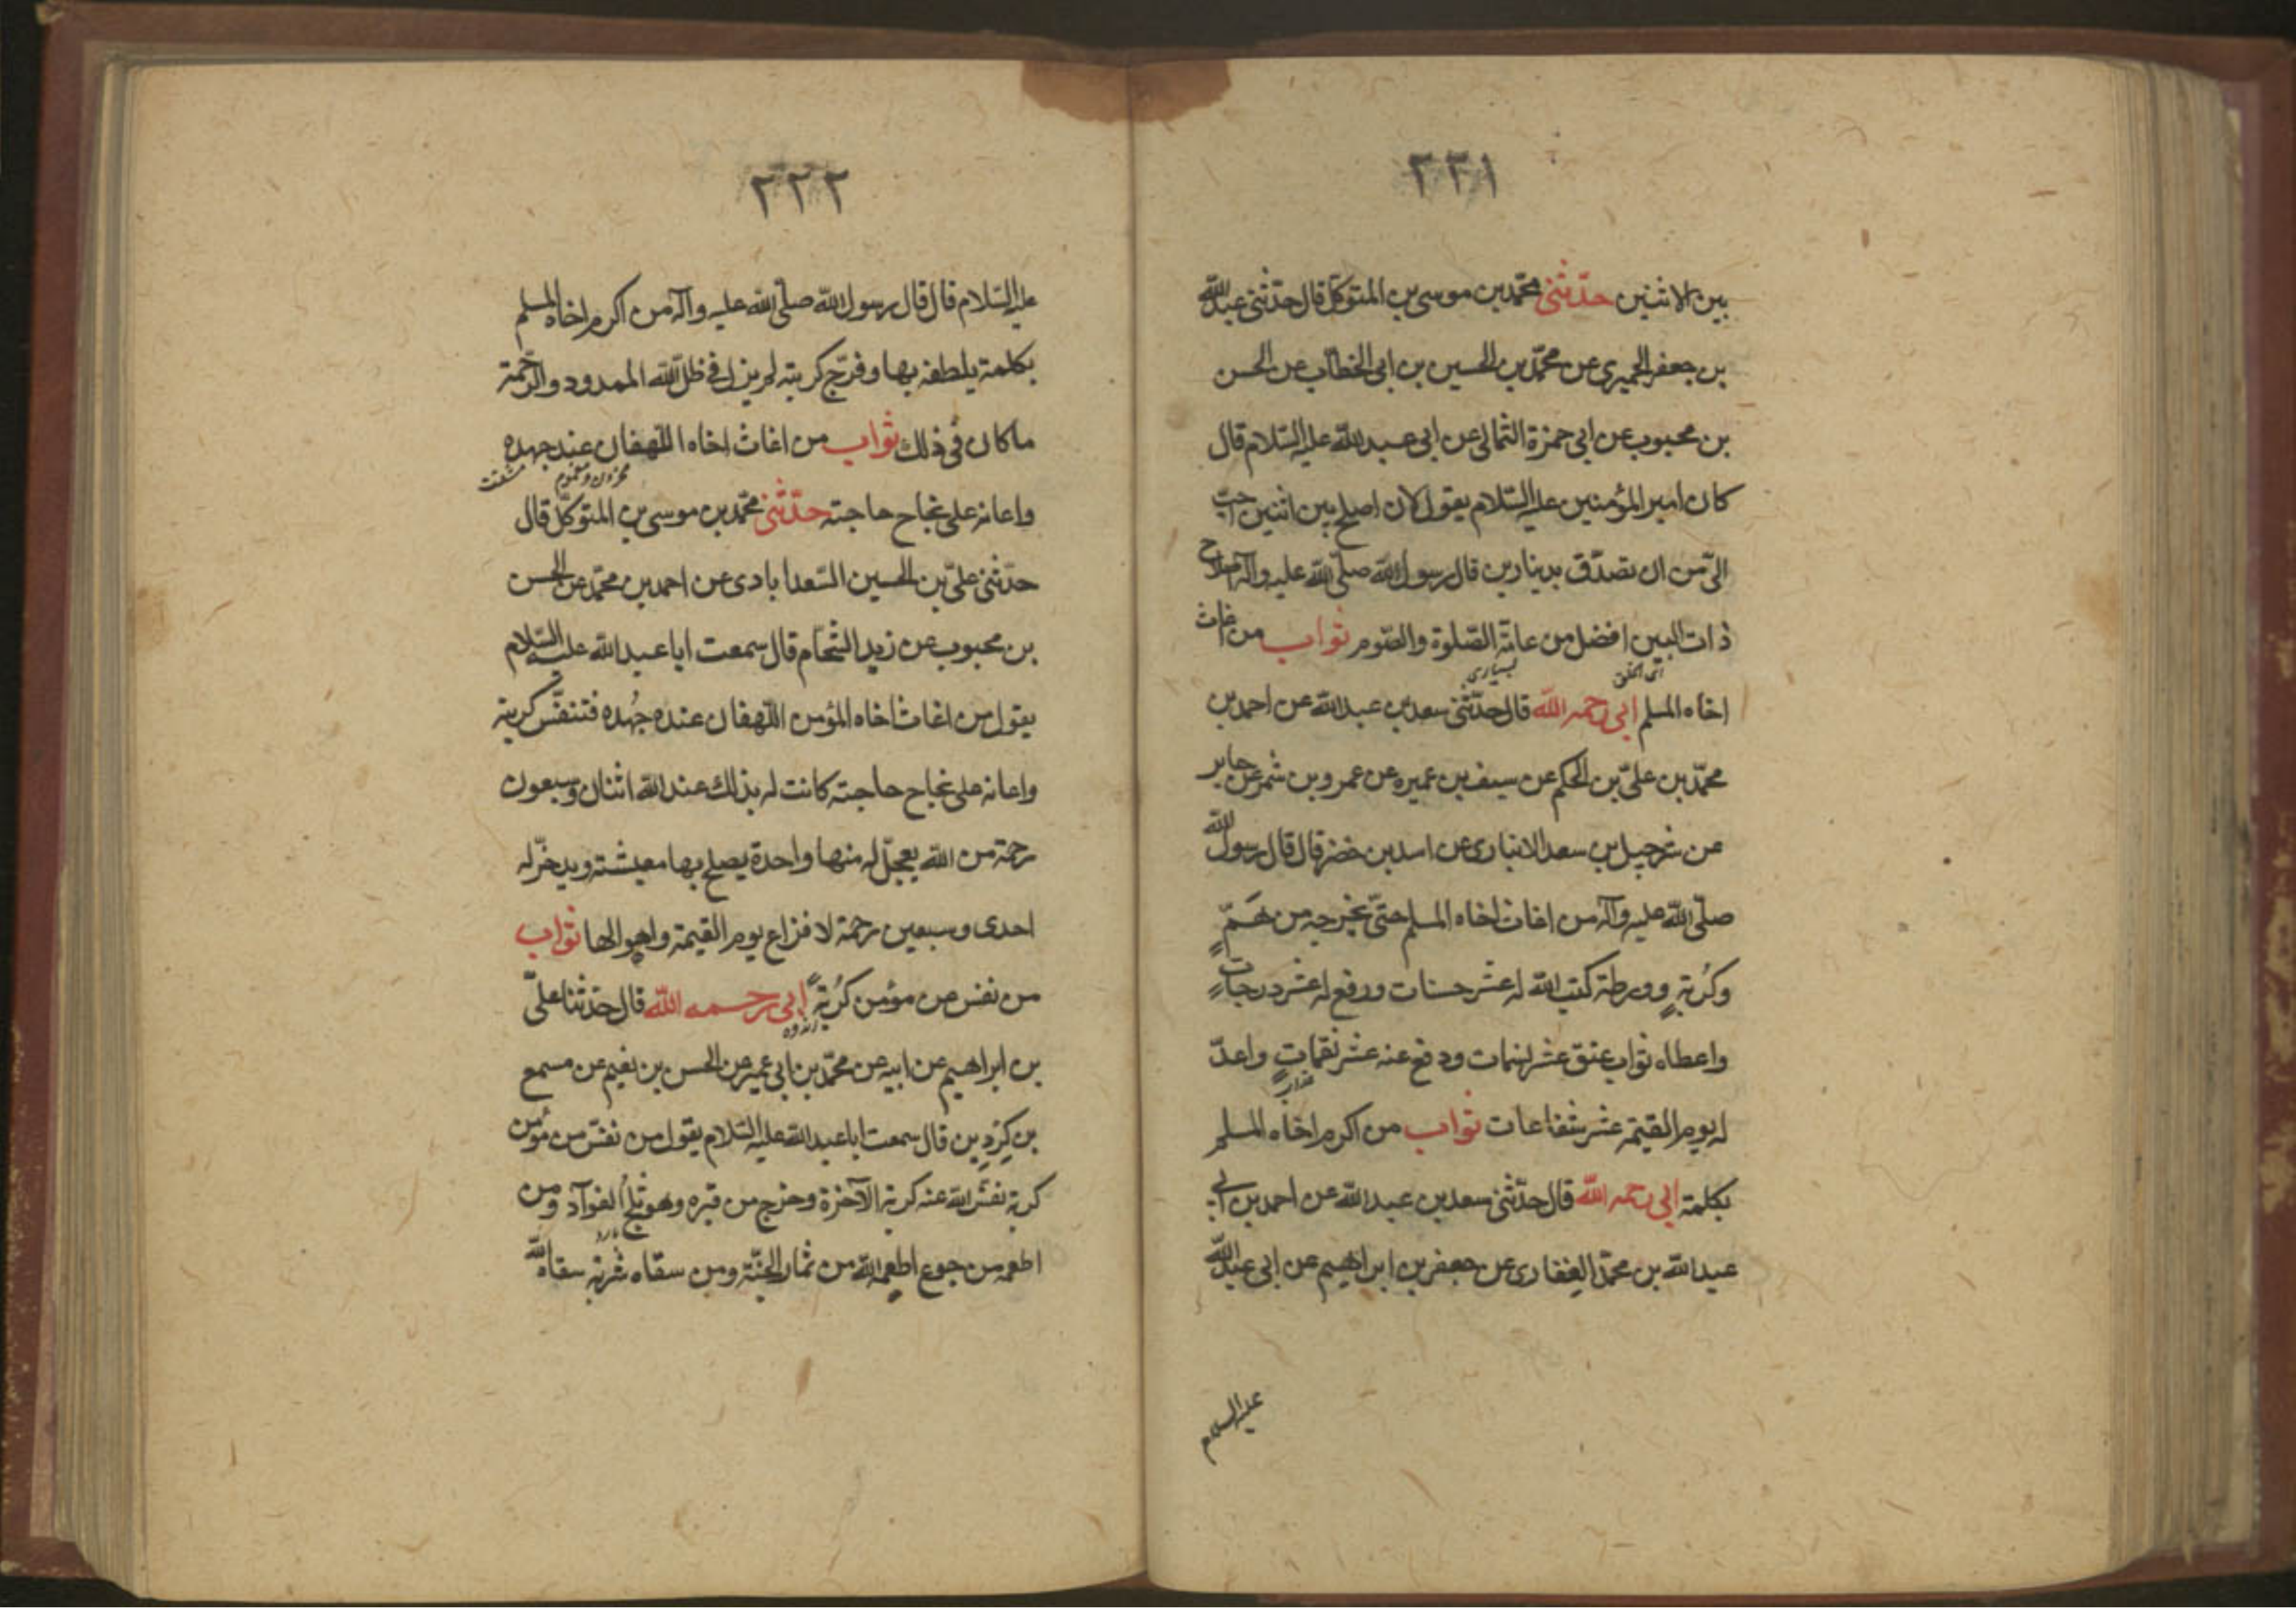 ٢٢١
بين الاثنين حدّثني محمّد بن موسى بن المتوكّل قال حدّثني عبدالله
بن جعفر الحميري عن محمّد بن الحسين بن ابي الخطّاب عن الحسن
بن محبوب عن ابي حمزة الثمالي عن ابي عبد الله عليه السّلام قال
كان امير المؤمنين عليه السّلام يقول لان اصلح بين اثنين احبّ
اليّ من ان تصدّق بدينارين قال رسول الله صلّى الله عليه وآله اصلاح
ذات البين افضل من عامّة الصّلوة والصّوم ثواب من اغاث
بسياري
اخاه المسلم ابي رحمه الله قال حدّثني سعد بن عبد الله عن احمد بن
محمّد بن عليّ بن الحكم عن سيف بن عميره عن عمرو بن شمر عن جابر
عن شرحبيل بن سعد الانباري عن اسد بن خضر قال قال رسول الله
صلّى الله عليه وآله من اغاث اخاه المسلم حتّى يخرجه من هَمٍّ
وكُربةٍ وورطة كتب الله له عشر حسنات ورفع له عشر درجاتٍ
واعطاه ثواب عتق عشر نسمات ودفع عنه عشر نقماتٍ واعدّ
عذاب
له يوم القيمة عشر شفاعات ثواب من اكرم اخاه المسلم
بكلمة ابي رحمه الله قال حدّثني سعد بن عبد الله عن احمد بن ابي
عبد الله بن محمّد الغِفاري عن جعفر بن ابراهيم عن ابي عبدالله
عليه السلام
٢٢٢
عليه السّلام قال قال رسول الله صلّى الله عليه وآله من اكرم اخاه المسلم
بكلمة يلطفه بها وفرّج كربته لم يزل في ظلّ الله الممدود والرّحمة
ما كان في ذلك ثواب من اغاث اخاه اللّهفان عند جهده
محزون ومغموم مشقت
واعانه على نجاح حاجته حدّثني محمّد بن موسى بن المتوكّل قال
حدّثني عليّ بن الحسين السّعدابادى عن احمد بن محمّد عن الحسن
بن محبوب عن زيد الشّحّام قال سمعت ابا عبد الله عليه السّلام
يقول من اغاث اخاه المؤمن اللّهفان عنده جُهده فتنفّس كربته
واعانه على نجاح حاجته كانت له بذلك عند الله اثنان وسبعون
رحمة من الله يعجّل له منها واحدة يصلح بها معيشته ويدخّر له
احدى وسبعين رحمة لافزاع يوم القيمة واهوالها ثواب
من نفس من مؤمن كُربةً ابي رحمه الله قال حدّثنا عليّ
اندوه
بن ابراهيم عن ابيه عن محمّد بن ابي عمير عن الحسن بن نعيم عن مسمع
بن كِردِين قال سمعت ابا عبد الله عليه السّلام يقول من نفّس من مؤمن
كربة نفّس الله عنه كربة الآخرة وخرج من قبره وهو ثلجُ الفوآد ومن
اطعمه من جوع اطعمه الله من ثمار الجنّة ومن سقاه شربة سقاه الله